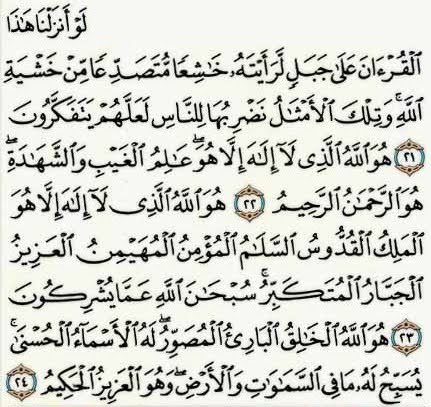 لَوْ أَنزَلْنَا هَٰذَا
ٱلْقُرْءَانَ عَلَىٰ جَبَلٍ لَّرَأَيْتَهُۥ خَٰشِعًا مُّتَصَدِّعًا مِّنْ خَشْيَةِ
ٱللَّهِ ۚ وَتِلْكَ ٱلْأَمْثَٰلُ نَضْرِبُهَا لِلنَّاسِ لَعَلَّهُمْ يَتَفَكَّرُونَ
٢١ هُوَ ٱللَّهُ ٱلَّذِى لَآ إِلَٰهَ إِلَّا هُوَ ۖ عَٰلِمُ ٱلْغَيْبِ وَٱلشَّهَٰدَةِ ۖ
هُوَ ٱلرَّحْمَٰنُ ٱلرَّحِيمُ ٢٢ هُوَ ٱللَّهُ ٱلَّذِى لَآ إِلَٰهَ إِلَّا هُوَ
ٱلْمَلِكُ ٱلْقُدُّوسُ ٱلسَّلَٰمُ ٱلْمُؤْمِنُ ٱلْمُهَيْمِنُ ٱلْعَزِيزُ
ٱلْجَبَّارُ ٱلْمُتَكَبِّرُ ۚ سُبْحَٰنَ ٱللَّهِ عَمَّا يُشْرِكُونَ
٢٣ هُوَ ٱللَّهُ ٱلْخَٰلِقُ ٱلْبَارِئُ ٱلْمُصَوِّرُ ۖ لَهُ ٱلْأَسْمَآءُ ٱلْحُسْنَىٰ ۚ
يُسَبِّحُ لَهُۥ مَا فِى ٱلسَّمَٰوَٰتِ وَٱلْأَرْضِ ۖ وَهُوَ ٱلْعَزِيزُ ٱلْحَكِيمُ ٢٤